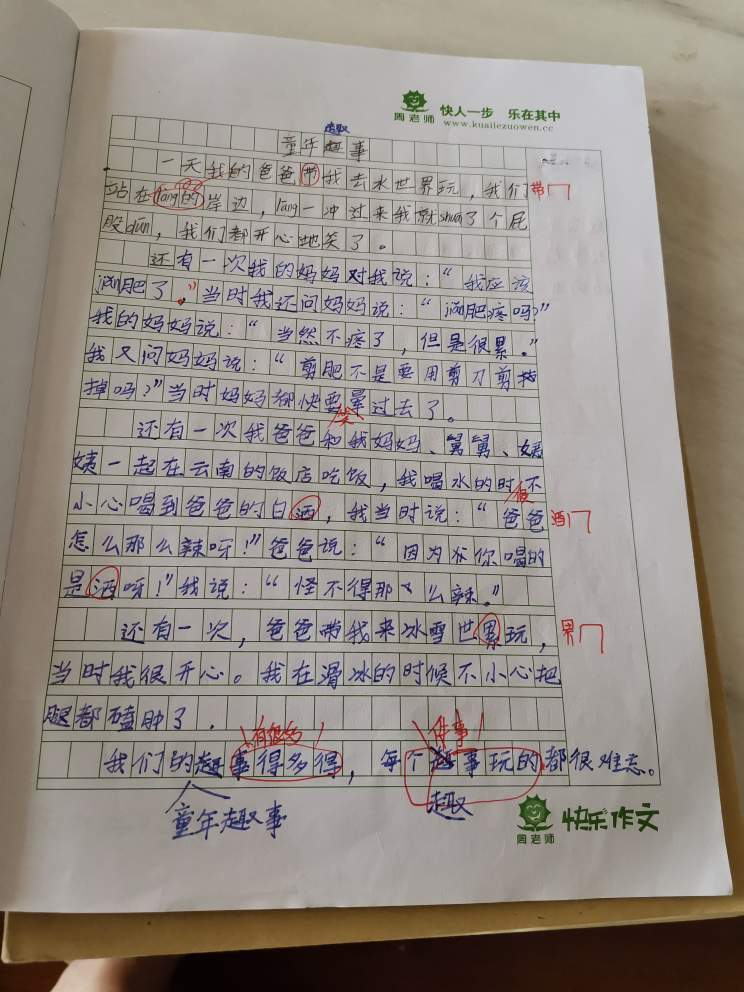 周老师 快人一步 乐在其中
www.kuailezuowen.cc
趣
童年趣事
一天我的爸爸带我去水世界玩，我们 带
站在lang的岸边，lang一冲过来我就shuai了个屁
股dūn，我们都开心地笑了。
还有一次我的妈妈对我说：“我应该
减肥了。”当时我还问妈妈说：“减肥疼吗？”
我的妈妈说：“当然不疼了，但是很累。”
我又问妈妈说：“剪肥不是要用剪刀剪
掉吗？”当时妈妈都快要晕过去了。
笑
还有一次我爸爸和我妈妈、舅舅、姨
姨一起在云南的饭店吃饭，我喝水的时候不
小心喝到爸爸的白酒，我当时说：“爸爸 酒
怎么那么辣呀！”爸爸说：“因为你喝的
是酒呀！”我说：“怪不得那么辣。”
还有一次，爸爸带我来冰雪世界玩， 界
当时我很开心。我在滑冰的时候不小心把
腿都磕肿了．
有很多 件事
我们的趣事得多得，每个趣事玩的都很难忘。
童年趣事 趣
周老师 快乐作文